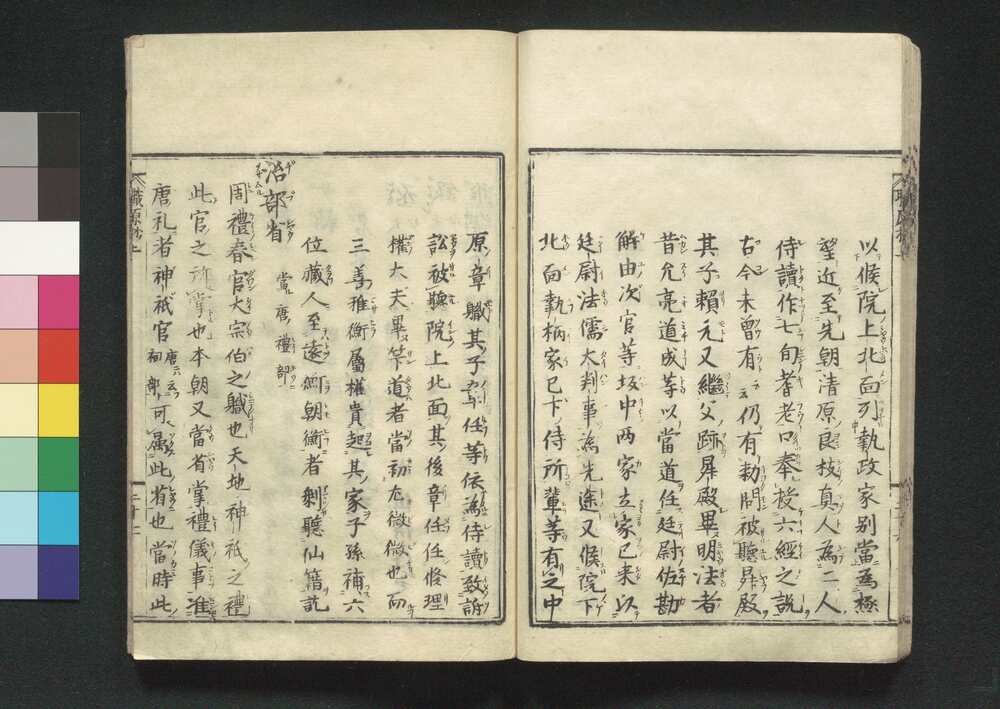 以候院上北面列執政家別當為極
望近至先朝清原良枝真人為二人
侍讀作七旬耆老口奉授六經之說
古今未曾有云仍有勅問被聽昇殿
其子賴元又繼父跡昇殿畢明法者
昔允亮道成等以當道任廷尉佐勘
解由次官等坂中兩家立家已来以
廷尉法儒大判事為先途又候院下
北面執柄家已下侍所輩等有之中
原章職其子等任等依為侍讀致訴
訟被聽院上北面其後章任任修理
權大夫畢笇道者當初尤微微也而
三善雅衡属權貴起其家子孫補六
位藏人至遠衡朝衡者剩聽仙籍訖
治部省
當唐禮部
周禮春官大宗伯之職也天地神祇之禮
此官之所掌也本朝又當省掌禮儀事准
唐礼者神祇官唐六云祠部可属此省也當時此
職原抄上